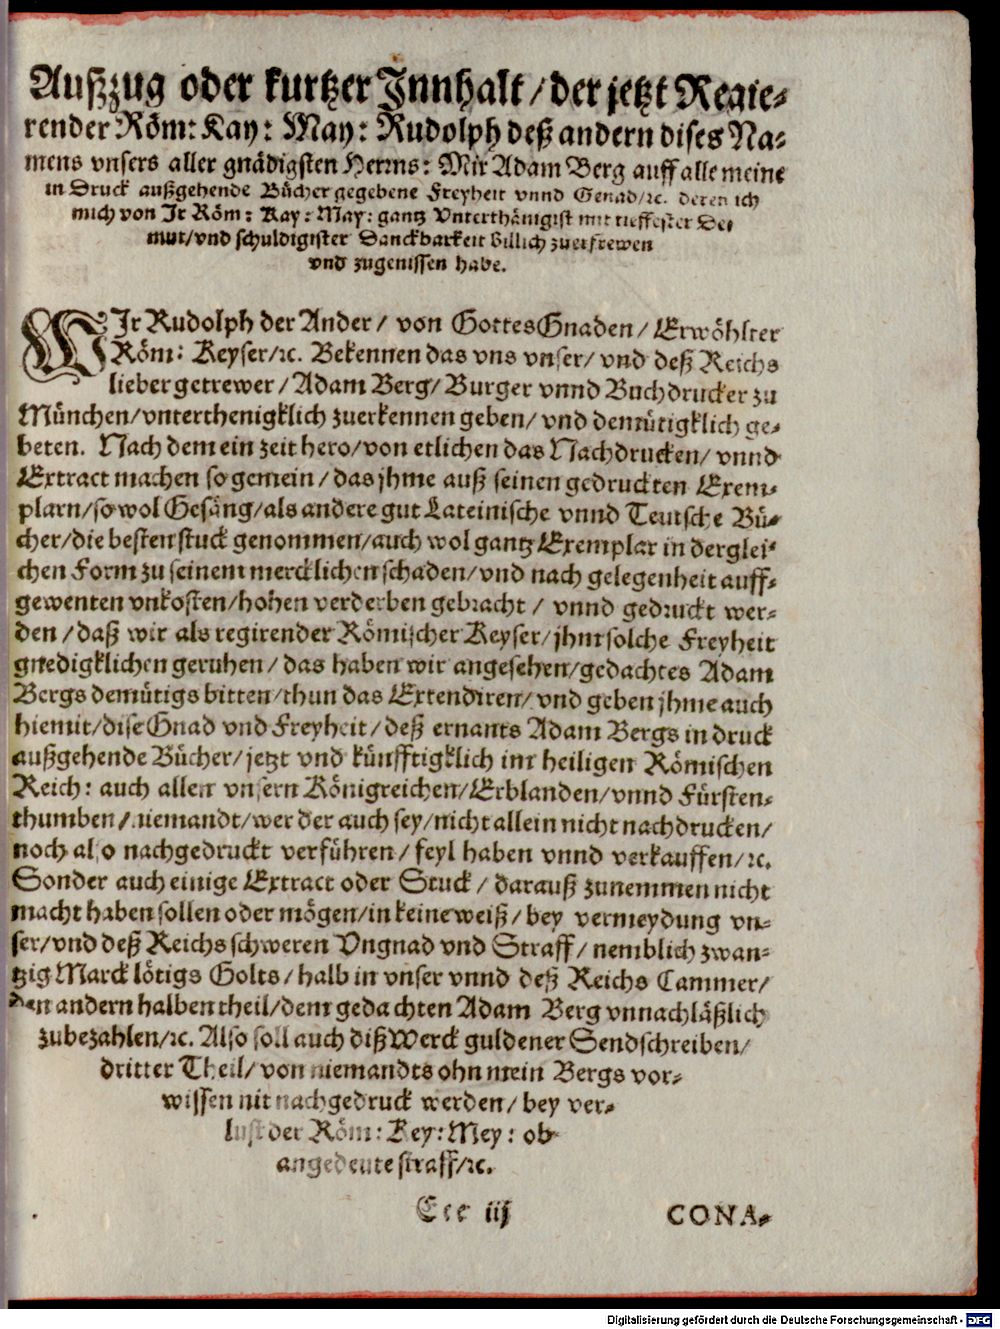 Außzug oder kurtzer Innhalt / der jetzt Regie-
render Röm: Kay: May: Rudolph deß andern dises Na-
mens vnsers aller gnädigsten Herrns: Mir Adam Berg auff alle meine
in Druck außgehende Bücher gegebene Freyheit vnnd Genad/ꝛc. deren ich
mich von Ir Röm: Kay: May: gantz Vnterthänigist mit tieffester De
mut/vnd schuldigister Danckbarkeit billich zuerfrewen
vnd zugenissen habe.
WIr Rudolph der Ander / von Gottes Gnaden / Erwöhlter
Röm: Keyser/ꝛc. Bekennen das vns vnser / vnd deß Reichs
lieber getrewer / Adam Berg / Burger vnnd Buchdrucker zu
München/vnterthenigklich zuerkennen geben / vnd demütigklich ge-
beten. Nach dem ein zeit hero/von etlichen das Nachdrucken / vnnd
Extract machen so gemein / das jhme auß seinen gedruckten Exem-
plarn/so wol Gesäng/als andere gut Lateinische vnnd Teutsche Bü-
cher/die besten stuck genommen/auch wol gantz Exemplar in derglei-
chen Form zu seinem mercklichen schaden/vnd nach gelegenheit auff-
gewenten vnkosten/hohen verderben gebracht / vnnd gedruckt wer-
den / daß wir als regirender Römischer Keyser/jhm solche Freyheit
gnedigklichen geruhen / das haben wir angesehen/gedachtes Adam
Bergs demütigs bitten/thun das Extendiren/vnd geben jhme auch
hiemit/dise Gnad vnd Freyheit / deß ernants Adam Bergs in druck
außgehende Bücher/jetzt vnd künfftigklich im heiligen Römischen
Reich: auch allen vnsern Königreichen/Erblanden/vnnd Fürsten-
thumben / niemandt/wer der auch sey/nicht allein nicht nachdrucken/
noch also nachgedruckt verführen / feyl haben vnnd verkauffen/ꝛc.
Sonder auch einige Extract oder Stuck / darauß zunemmen nicht
macht haben sollen oder mögen/in keine weiß / bey vermeydung vn-
ser/vnd deß Reichs schweren Vngnad vnd Straff / nemblich zwan-
tzig Marck lötigs Golts / halb in vnser vnnd deß Reichs Cammer/
den andern halben theil/dem gedachten Adam Berg vnnachläßlich
zubezahlen/ꝛc. Also soll auch diß Werck guldener Sendschreiben/
dritter Theil / von niemandts ohn mein Bergs vor-
wissen nit nachgedruck werden / bey ver-
lust der Röm: Key: Mey: ob-
angedeute straff/ꝛc.
Eee iij CONA-
Digitalisierung gefördert durch die Deutsche Forschungsgemeinschaft - DFG